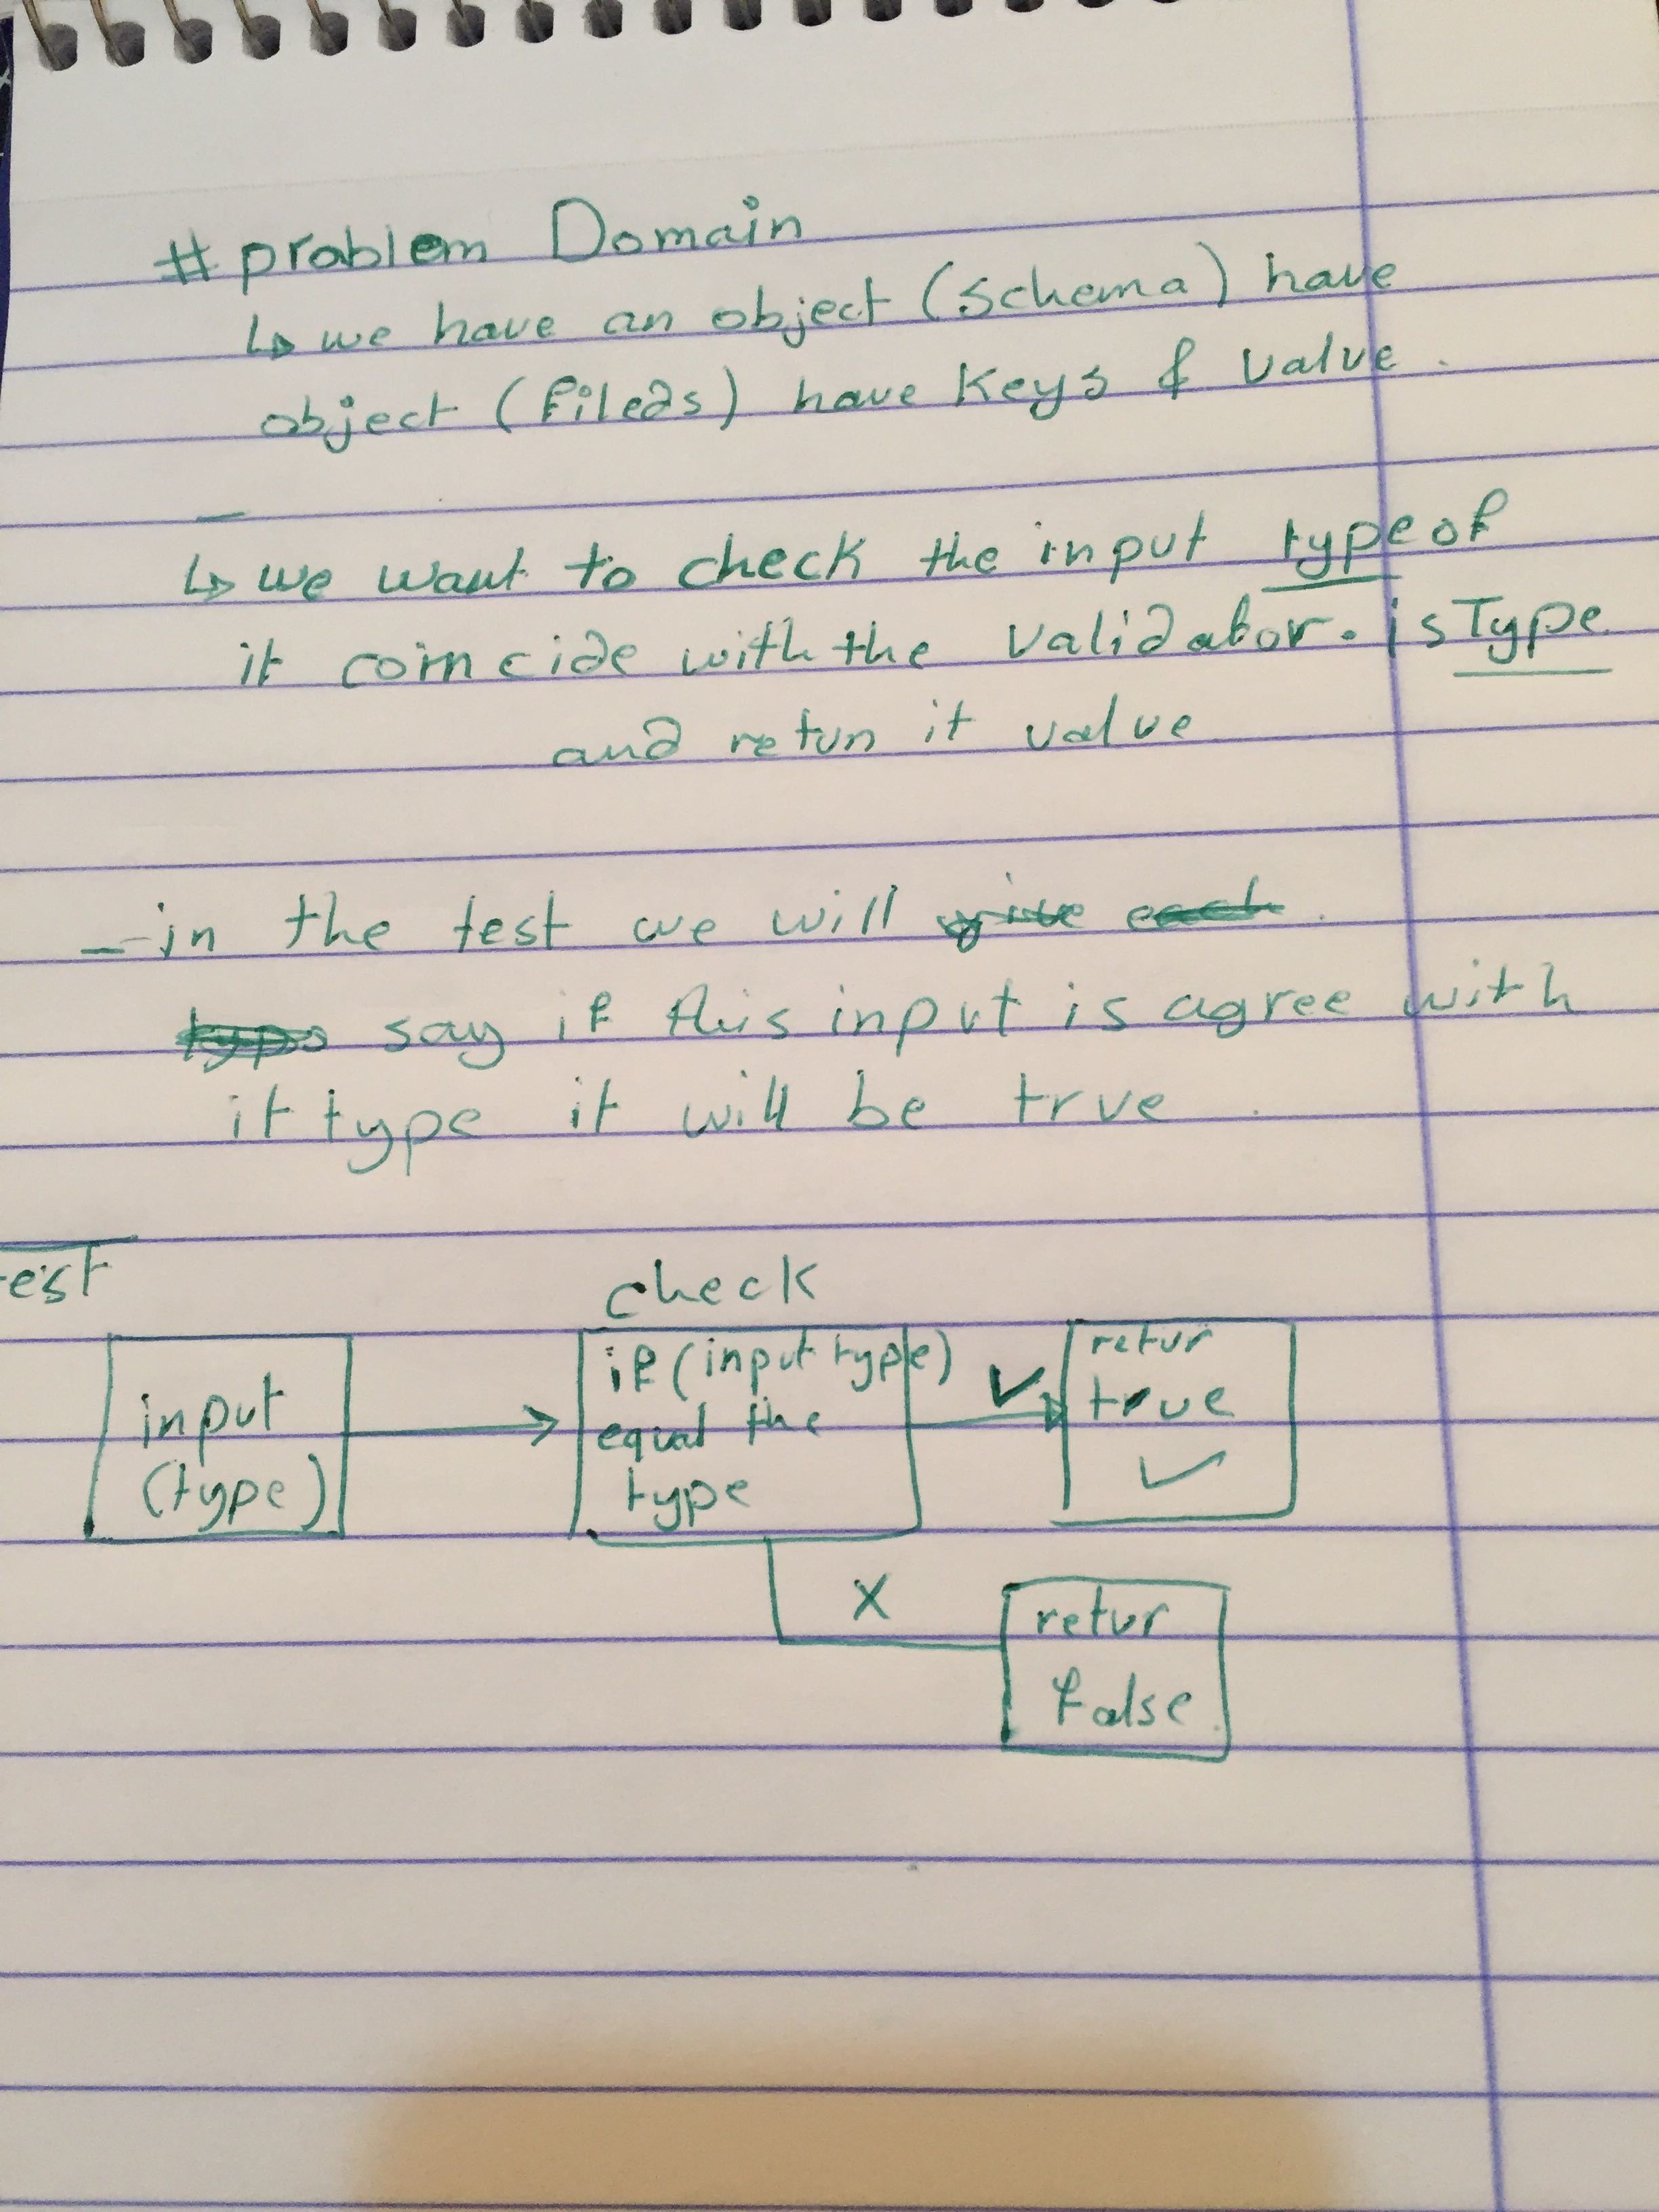 # problem Domain
↳ we have an object (schema) have
object (fileds) have Keys & value.
↳ we want to check the input typeof
it coincide with the validator.isType
and retun it value
- in the test we will give each.
say if this input is agree with
it type it will be true.
check
input
(type)
if (input type)
equal the
type
✓
retur
true
✓
X
retur
false